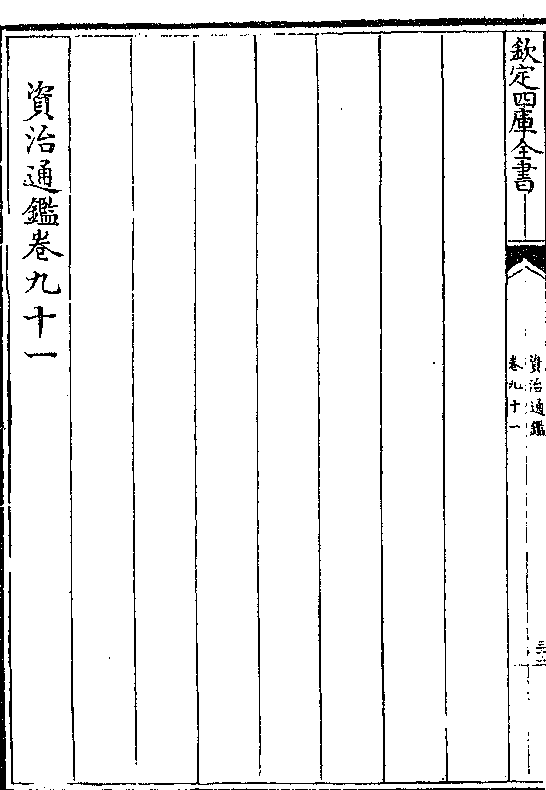 欽定四庫全書
資治通鑑
卷九十一
資治通鑑卷九十一